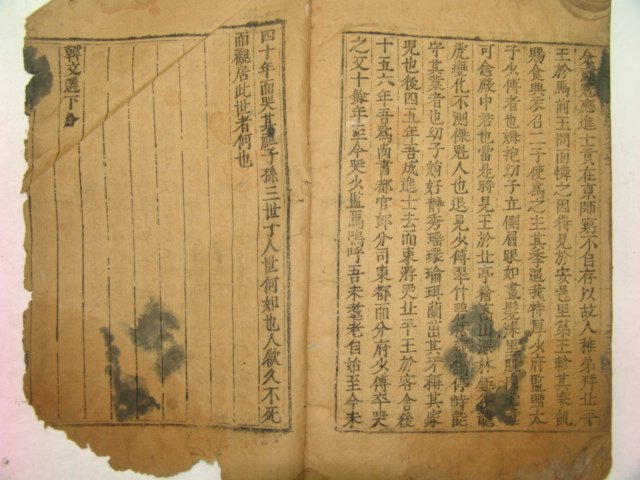 應進士貢在京師窮不自存以故人稚弟拜北平
王於馬前王問而憐之因得見於安邑里第王軫其寒飢
賜食與衣召二子使爲之主其季遇我特厚少府監贈太
子少傅者也姆抱幼子立側眉眼如畫髮漆黑肌肉
可念殿中君也當是時見王於北亭猶高山深林鉅谷龍
虎變化不測傑魁人也退見少傅翠竹碧梧停峙能
守其業者也幼子娟好靜秀瑤環瑜珥蘭茁其牙稱其家
兒也後四五年吾成進士去而東游哭北平王於客舍後
十五六年吾爲尚書都官郎分司東都而分府少傅卒哭
之又十餘年至今哭少監焉嗚呼吾未耄老自始至今未
四十年而哭其祖子孫三世于人世何如也人欲久不死
而觀居此世者何也
韓文選下終